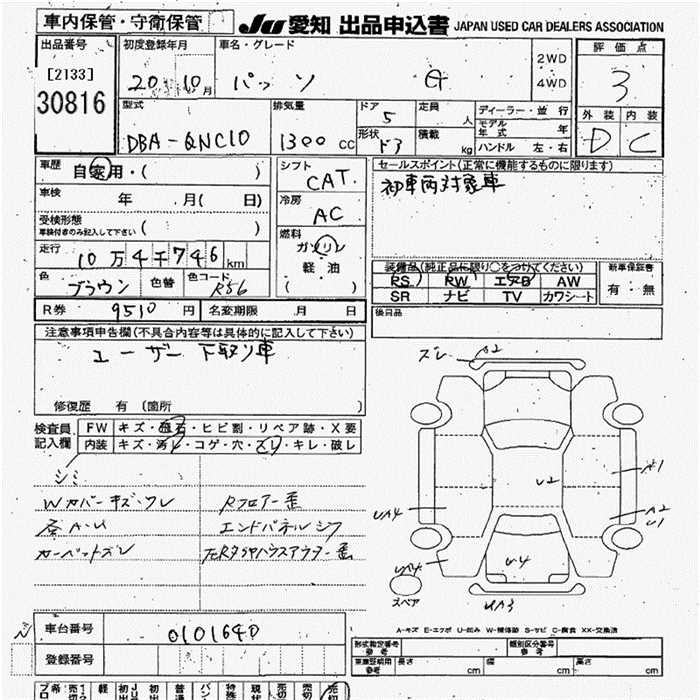 車内保管・守衛保管
JU 愛知 出品申込書 JAPAN USED CAR DEALERS ASSOCIATION
出品番号
[2133]
30816
初度登録年月
20 10月
車名・グレード
パッソ G
2WD
4WD
評価点
3
外装 内装
D C
型式
DBA-QNC10
排気量
1300 cc
ドア
5
形状
ドア
定員
人
積載
kg
ディーラー・並行
モデル年式 年
ハンドル 左・右
車歴 自家用・( )
車検 年 月( 日)
受検形態
車検付きのみ記入して下さい ( )
走行
10万4千746km
色 ブラウン
色替
色コード R56
シフト
CAT
冷房
AC
燃料
ガソリン
軽油
( )
セールスポイント(正常に機能するものに限ります)
初車両対象車
装備品(純正品に限り○をつけてください)
PS PW エアB AW
SR ナビ TV カワシート
新車保証書
有・無
後日品
R券 9510円
名変期限 月 日
注意事項申告欄(不具合内容等は具体的に記入して下さい)
ユーザー下取り車
修復歴 有 (箇所 )
検査員記入欄
FW キズ・飛石・ヒビ割・リペア跡・X要
内装 キズ・汚レ・コゲ・穴・スレ・キレ・破レ
シミ
Wカバーキズ・ワレ
Rフロアー歪
エンドパネルシワ
カーペットズレ
ズレ A2
A1
U2
UA4
A2
U1
U4
UA4
UA3
スペア
A-キズ E-エクボ U-凹み W-補修跡 S-サビ C-腐食 XX-交換済
車台番号 0101640
登録番号
形式指定番号 参考
類別区分番号 参考
車庫証明用 参考 長さ cm 幅 cm 高さ cm